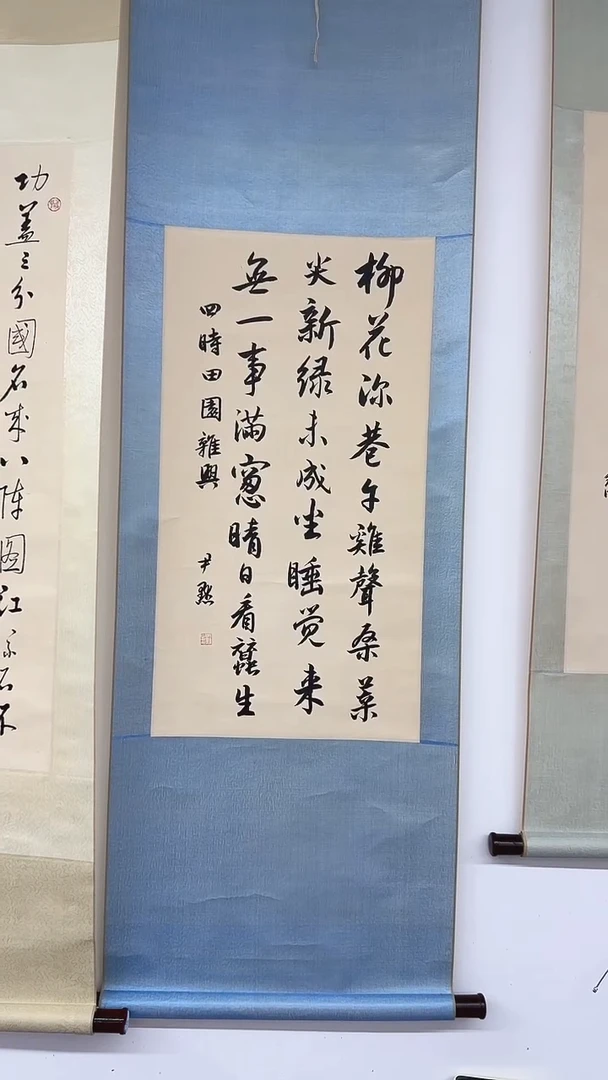 柳花深巷午雞聲桑葉
尖新绿未成坐睡觉来
無一事滿窓晴日看蠶生
四時田園雜興
尹默
功盖三分國名成八阵图江流石不